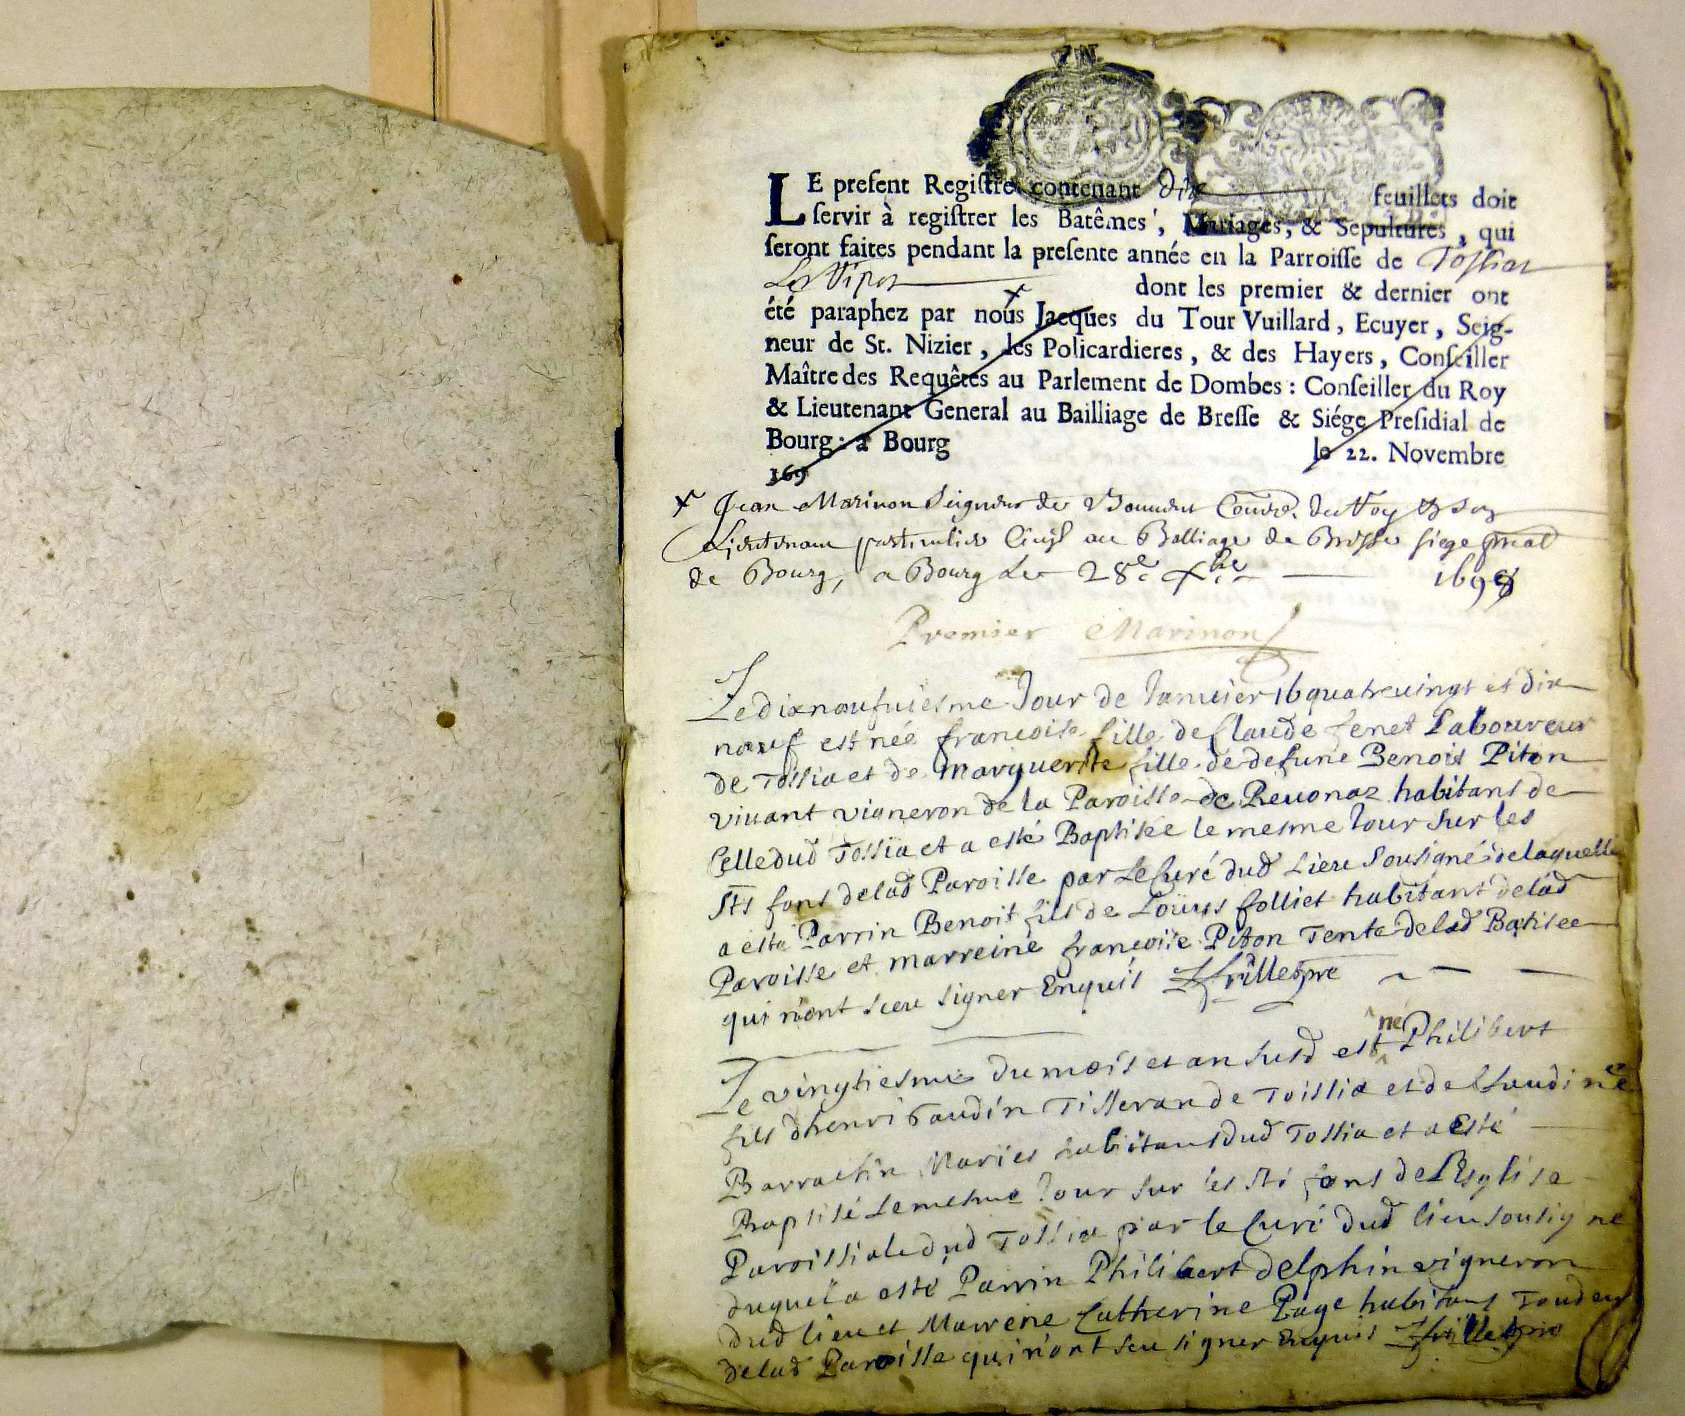 LE preſent Regiſtre contenant dix feuillets doit
ſervir à regiſtrer les Batêmes, Mariages, & Sepultures, qui
ſeront faites pendant la preſente année en la Parroiſſe de Tossiat
dont les premier & dernier ont
été paraphez par nous Jacques du Tour Vuillard, Ecuyer, Seig-
neur de St. Nizier, les Policardieres, & des Hayers, Conſeiller
Maître des Requêtes au Parlement de Dombes : Conſeiller du Roy
& Lieutenant General au Bailliage de Breſſe & Siége Preſidial de
Bourg : à Bourg le 22. Novembre
169
x Jean Marinon Seigneur de du Roy
Lieutenant particulier Civil au Balliage de Bresse siege
de Bourg, a Bourg Le 28e xbre 1698
Premier Marinon
Le dixneufuiesme Jour de Januier 16 quatreuingt et dix
neuf est née francoise fille de Claude fenet Laboureur
de Tossia et de marguerite fille de defunc Benoit Piton
viuant vigneron de la Paroisse de Reuonaz habitans de
Celle dud Tossia et a esté Baptisée le mesme Jour sur les
Sts fons de lad Paroisse par Le Curé dud Lieu Sousigné de laquelle
a esté Parrin Benoit fils de Louys folliet habitant de lad
Paroisse et marreine francoise Piton Tente de lad Batisee
qui n'ont sceu signer Enquis
Le vingtiesme du mois et an susd est né Philibert
fils dhenri Gaudin Tisseran de Toissia et de Claudine
Barrachin Mariés habitans dud Tossia et a Esté
Baptisé Le mesme Jour sur les Sts fons de L'Esglise
Paroissiale dud Tossia par le Curé dud lieu sousigné
duquel a esté Parrin Philibert delphin vigneron
dud lieu et Mareine Catherine Page habitans
de lad Paroisse qui n'ont sceu signer Enquis